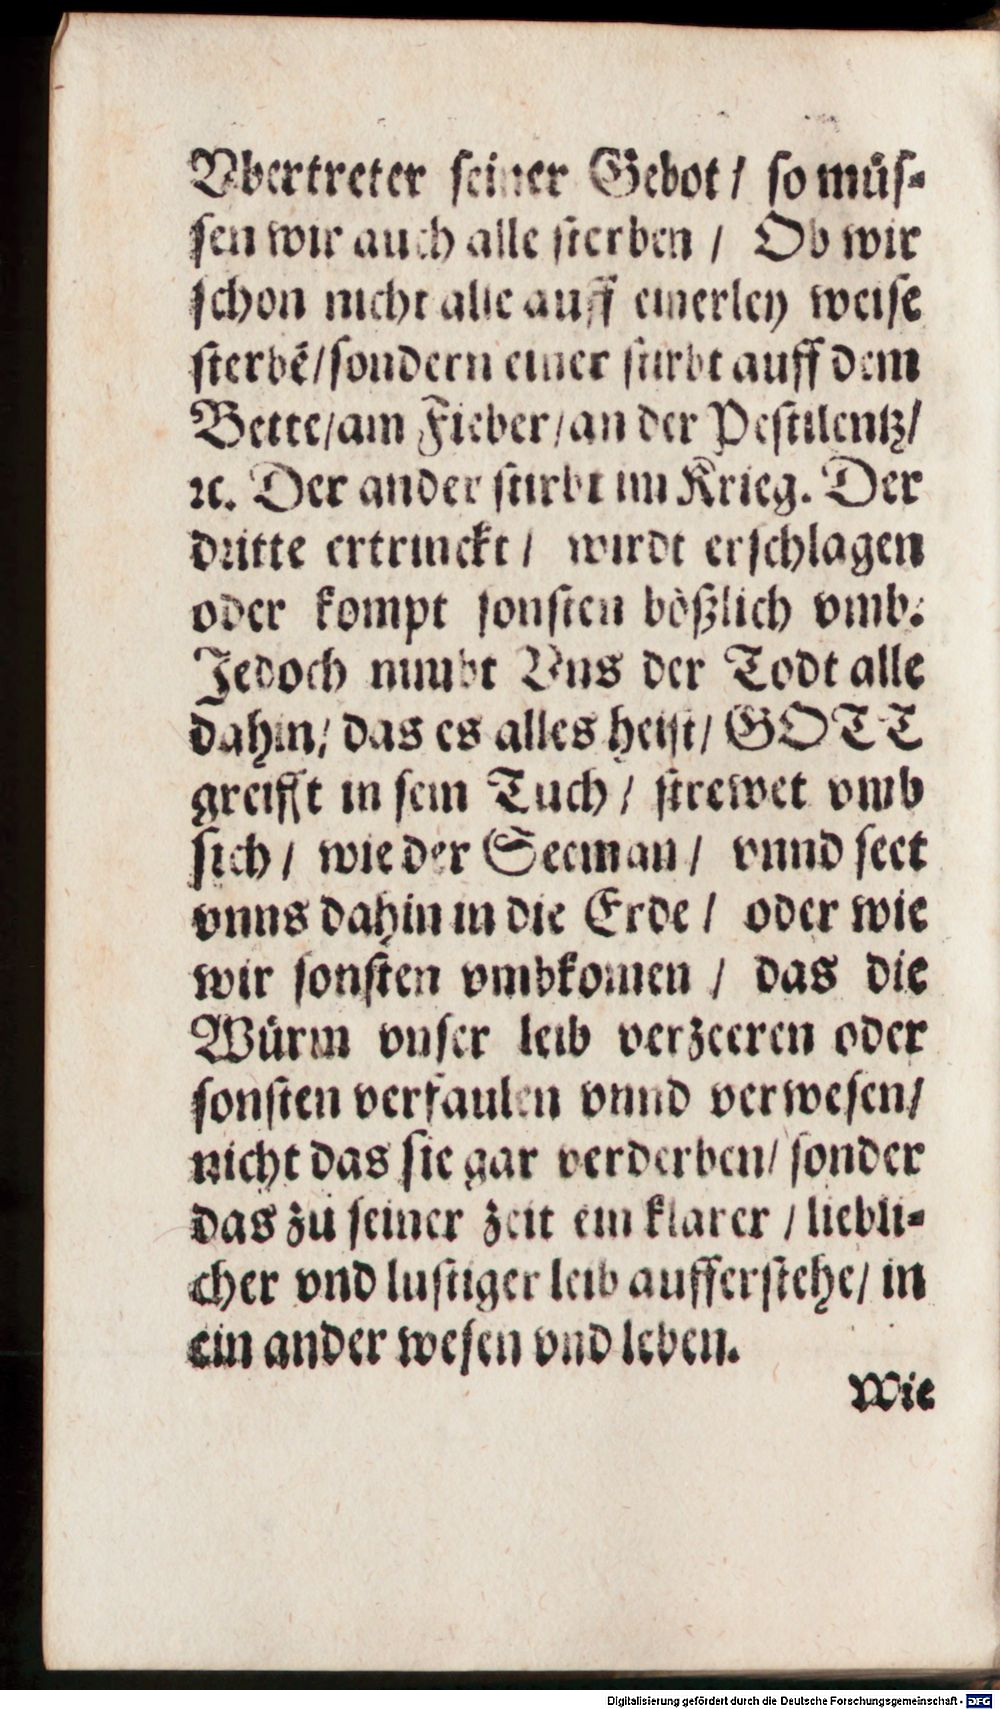 Vbertreter seiner Gebot / so müs-
sen wir auch alle sterben / Ob wir
schon nicht alle auff einerley weise
sterbẽ/sondern einer stirbt auff dem
Bette/am Fieber/an der Pestilentz/
ꝛc. Der ander stirbt im Krieg. Der
dritte ertrinckt / wirdt erschlagen
oder kompt sonsten bößlich vmb.
Jedoch nimbt Vns der Todt alle
dahin/ das es alles heist/ GOTT
greifft in sein Tuch / strewet vmb
sich / wie der Seeman / vnnd seet
vnns dahin in die Erde / oder wie
wir sonsten vmbkomen / das die
Würm vnser leib verzeeren oder
sonsten verfaulen vnnd verwesen/
nicht das sie gar verderben/ sonder
das zu seiner zeit ein klarer / liebli-
cher vnd lustiger leib aufferstehe/ in
ein ander wesen vnd leben.
Wie
Digitalisierung gefördert durch die Deutsche Forschungsgemeinschaft - DFG